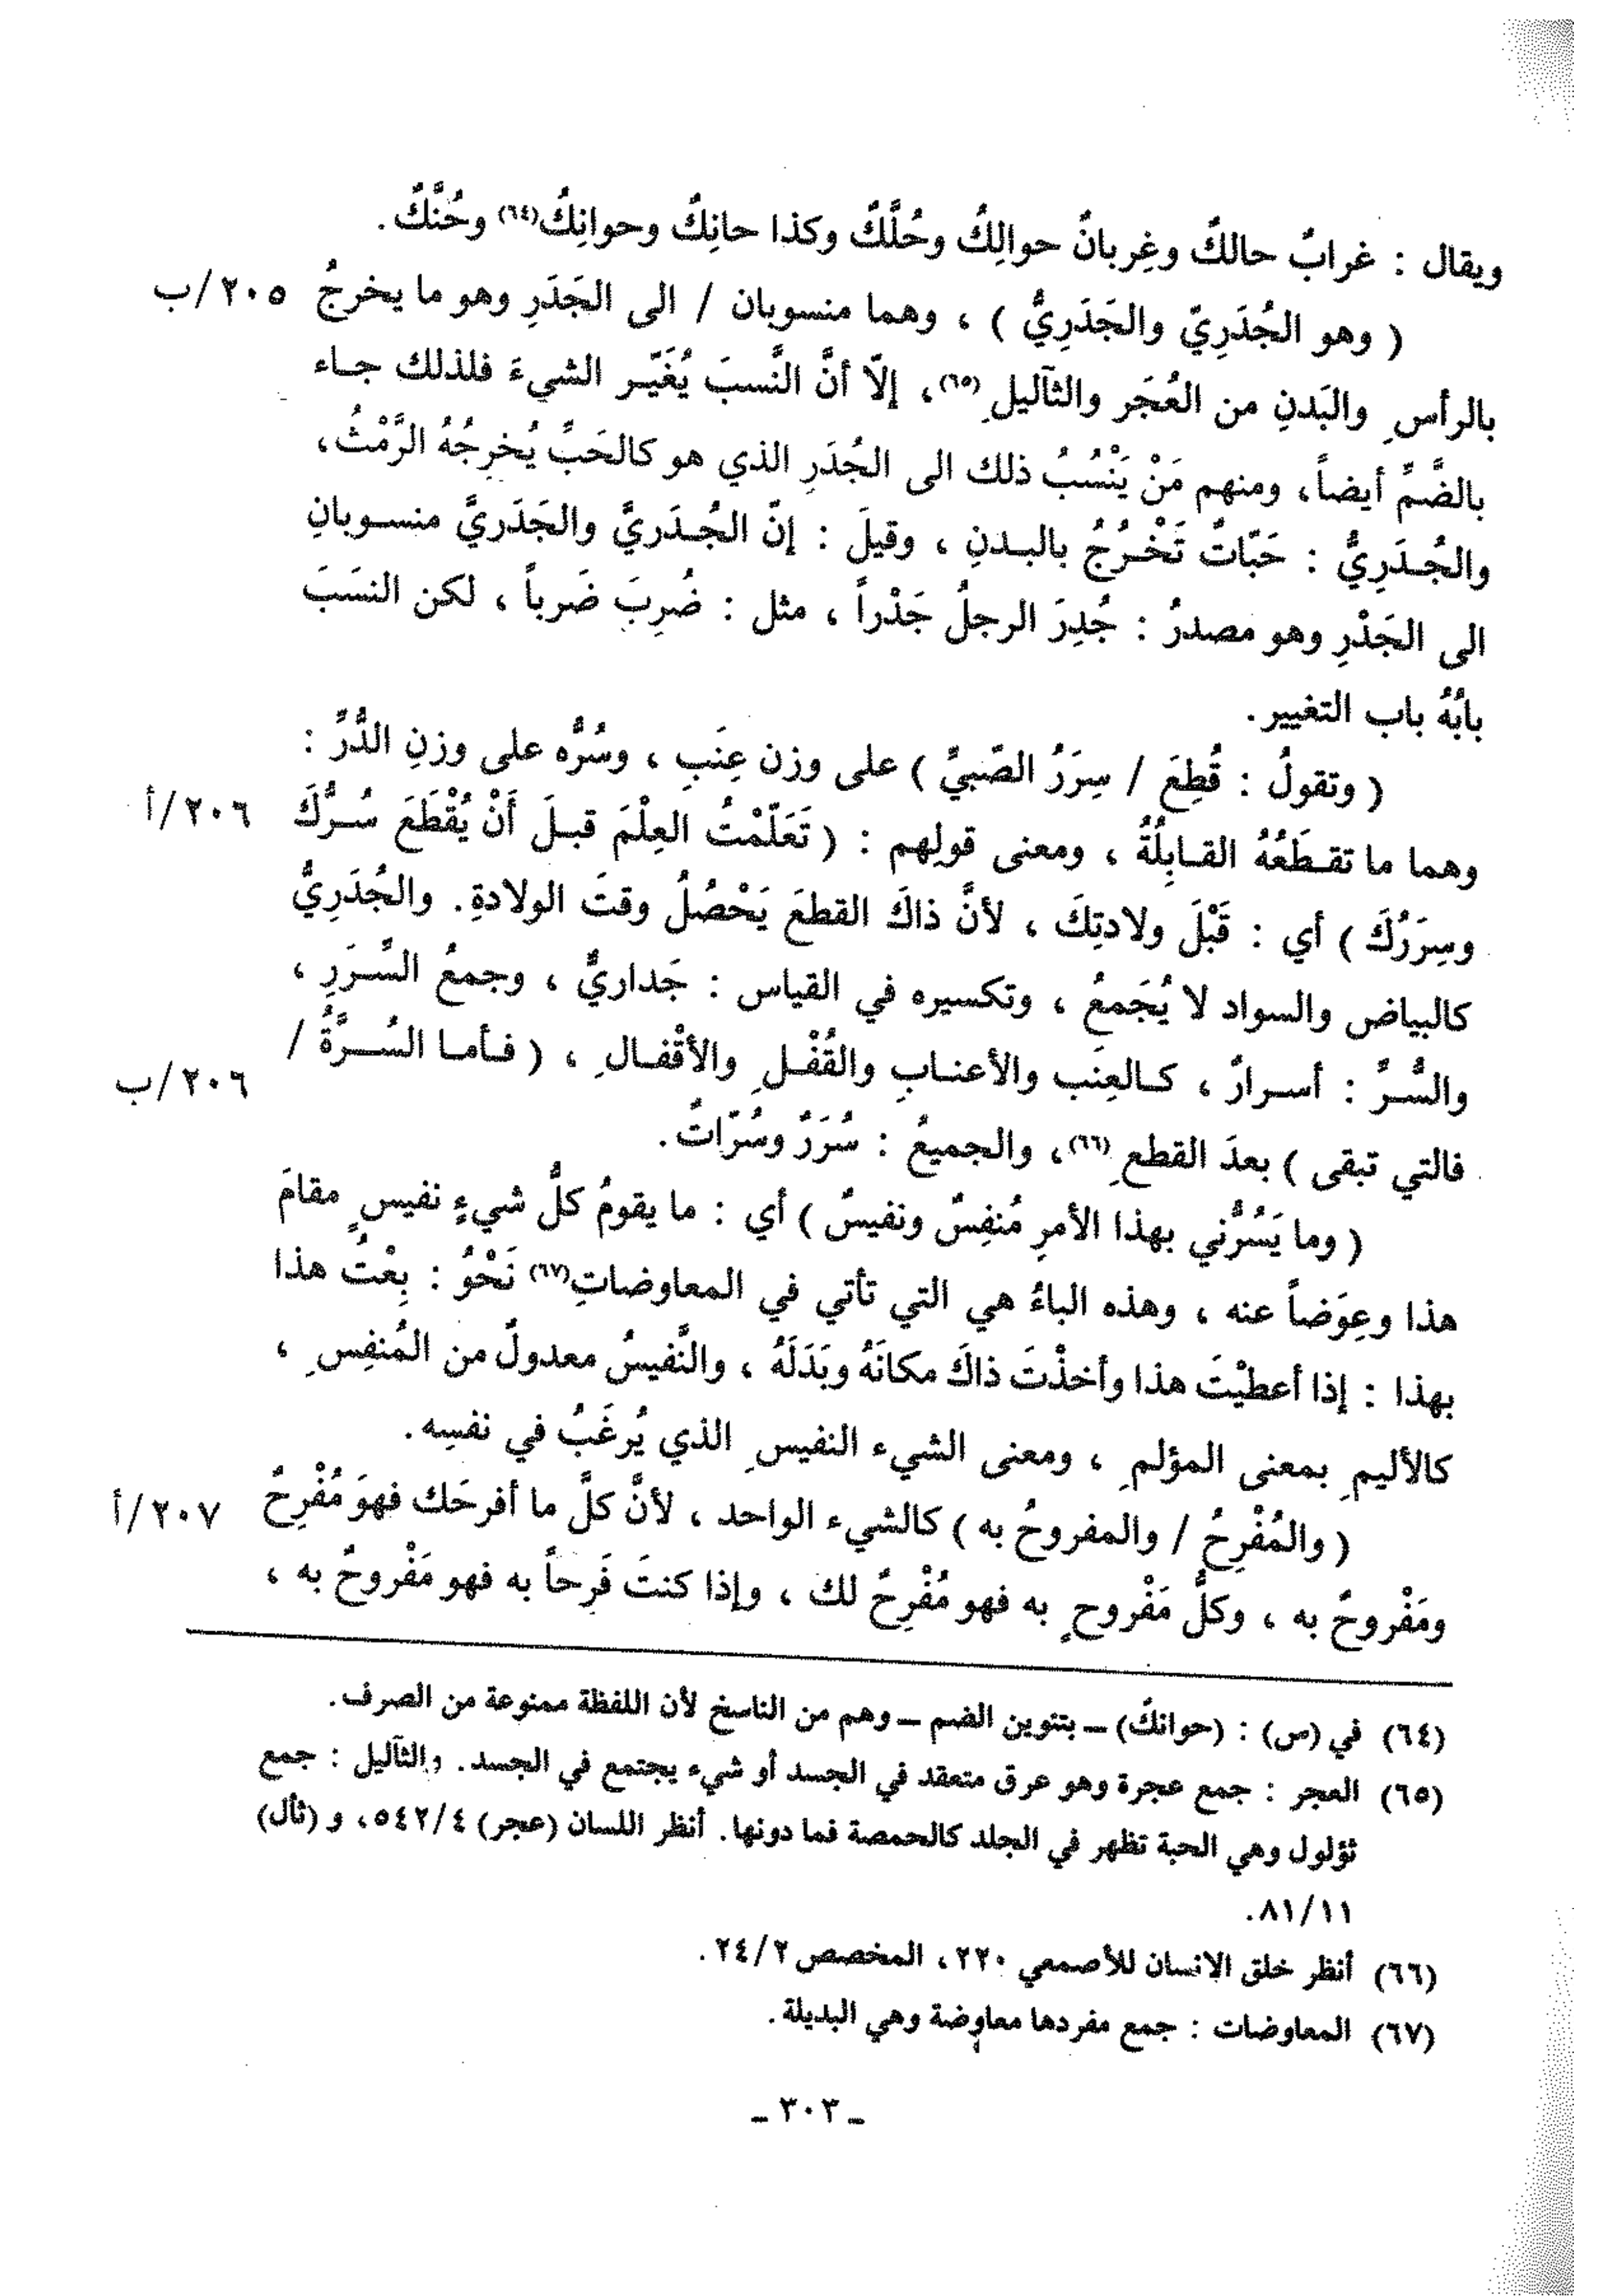 ويقال : غرابٌ حالكٌ وغِربانٌ حوالِكُ وحُلَّكٌ وكذا حانِكٌ وحوانِكُ(٦٤) وحُنَّكٌ.
( وهو الجُدَرِيّ والجَدَرِيُّ ) ، وهما منسوبان / الى الجَدَرِ وهو ما يخرجُ ٢٠٥/ب
بالرأسِ والبَدنِ من العُجَر والثآليلِ(٦٥)، إلّا أنَّ النَّسبَ يُغَيّر الشيءَ فلذلك جاء
بالضَّمِّ أيضاً، ومنهم مَنْ يَنْسُبُ ذلك الى الجُدَرِ الذي هو كالحَبِّ يُخرِجُهُ الرَّمْثُ،
والجُدَرِيُّ : حَبّاتٌ تَخْرُجُ بالبدنِ ، وقيلَ : إنّ الجُدَريَّ والجَدَريَّ منسوبانِ
الى الجَدْرِ وهو مصدرُ : جُدِرَ الرجلُ جَدْراً ، مثل : ضُرِبَ ضَرباً ، لكن النسَبَ
بابُهُ باب التغيير.
( وتقولُ : قُطِعَ / سِرَرُ الصّبيِّ ) على وزن عِنَبِ ، وسُرُّه على وزنِ الدُّرِّ :
وهما ما تقطَعُهُ القابِلُةُ ، ومعنى قولِهم : ( تَعَلّمْتُ العِلْمَ قبلَ أَنْ يُقْطَعَ سُرُّكَ ٢٠٦/أ
وسِرَرُكَ ) أي : قَبْلَ ولادتِكَ ، لأنَّ ذاكَ القطعَ يَحْصُلُ وقتَ الولادةِ. والجُدَرِيُّ
كالبياض والسواد لا يُجَمعُ ، وتكسيره في القياس : جَداريٌّ ، وجمعُ السِّرَرِ ،
والسُّرِّ : أسرارٌ ، كالعِنَب والأعنابِ والقُفْلِ والأقْفالِ ، ( فأما السُرَّةُ /
فالتي تبقى ) بعدَ القطعِ(٦٦)، والجميعُ : سُرَرٌ وسُرّاتٌ. ٢٠٦/ب
( وما يَسُرُّني بهذا الأمرِ مُنفِسٌ ونفيسٌ ) أي : ما يقومُ كلُّ شيءٍ نفيسٍ مقامَ
هذا وعِوَضاً عنه ، وهذه الباءُ هي التي تأتي في المعاوضاتِ(٦٧) نَحْوُ : بِعْتُ هذا
بهذا : إذا أعطيْتَ هذا وأخذْتَ ذاكَ مكانَهُ وبَدَلَهُ ، والنَّفيسُ معدولٌ من المُنفِسِ ،
كالأليمِ بمعنى المؤلمِ ، ومعنى الشيء النفيسِ الذي يُرغَبُ في نفسِه.
( والمُفْرِحُ / والمفروحُ به ) كالشيء الواحد ، لأنَّ كلَّ ما أفرحَك فهوَ مُفْرِحٌ ٢٠٧/أ
ومَفْروحٌ به ، وكلُّ مَفْروحٍ به فهو مُفْرِحٌ لك ، وإذا كنتَ فَرِحاً به فهو مَفْروحٌ به ،
(٦٤) في (س) : (حوانكٌ) ــ بتنوين الضم ــ وهم من الناسخ لأن اللفظة ممنوعة من الصرف.
(٦٥) العجر : جمع عجرة وهو عرق متعقد في الجسد أو شيء يجتمع في الجسد. والثآليل : جمع
ثؤلول وهي الحبة تظهر في الجلد كالحمصة فما دونها. أنظر اللسان (عجر) ٥٤٢/٤، و (ثأل)
٨١/١١.
(٦٦) أنظر خلق الانسان للأصمعي ٢٢٠، المخصص ٢٤/٢.
(٦٧) المعاوضات : جمع مفردها معاوضة وهي البديلة.
ـ ٣٠٣ ـ